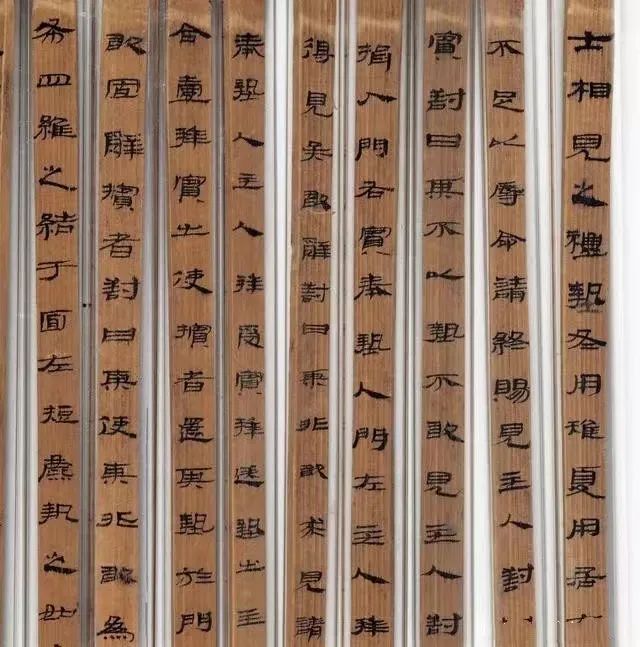 士相見之禮摯冬用雉夏用居
不足以辱命請終賜見主人對
賓對曰某不以摯不敢見主人對
揖入門右賓奉摯入門左主人拜
得見矣敢辭對曰某非敢求見請
奉摯入主人拜受賓拜送摯出主
合壹拜賓出使擯者還其摯於門
敢固辭擯者對曰某使某非敢爲
布四維之結于面左執之如